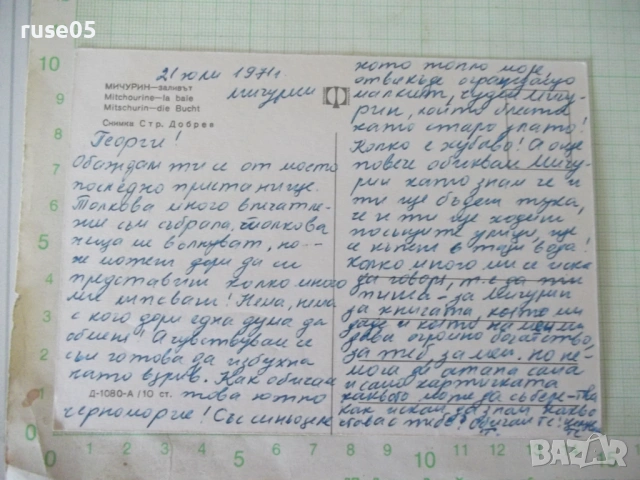 ruse05
21 юли 1971г
Мичурин
МИЧУРИН—заливът
Mitchourine—la baie
Mitschurin—die Bucht
Снимка Стр. Добрев
Георги!
Обаждам ти се от моето
последно пристанище.
Толкова много впечатле-
ния съм събрала, толкова
неща ме вълнуват, но
не можеш дори да си
представиш колко много
ми липсваш! Няма, няма
с кого дори една дума да
обменя! А чувствувам се
съм готова да избухна
като взрив. Как обичам
това южно
черноморие! Със синьото
Д-1080-А / 10 ст.
като топло море
отвсякъде
малкият, Мичу-
рин, който блести
като старо злато!
Колко е хубаво! А още
повече обиквам Мичу-
рин като зная че и
ти ще бъдеш тука,
че и ти ще ходиш
по същите улици, ще
се къпеш в тази вода!
Колко много ми се иска
да говоря,
за Мичурин
за книгата, която ми
даде и която на мен ми
дава огромно богатство,
за теб, за мен. Но не-
мога
и само картичката
какво може да събере
Как искам да зная какво
става с тебе! Обичам те!
bazar.bg